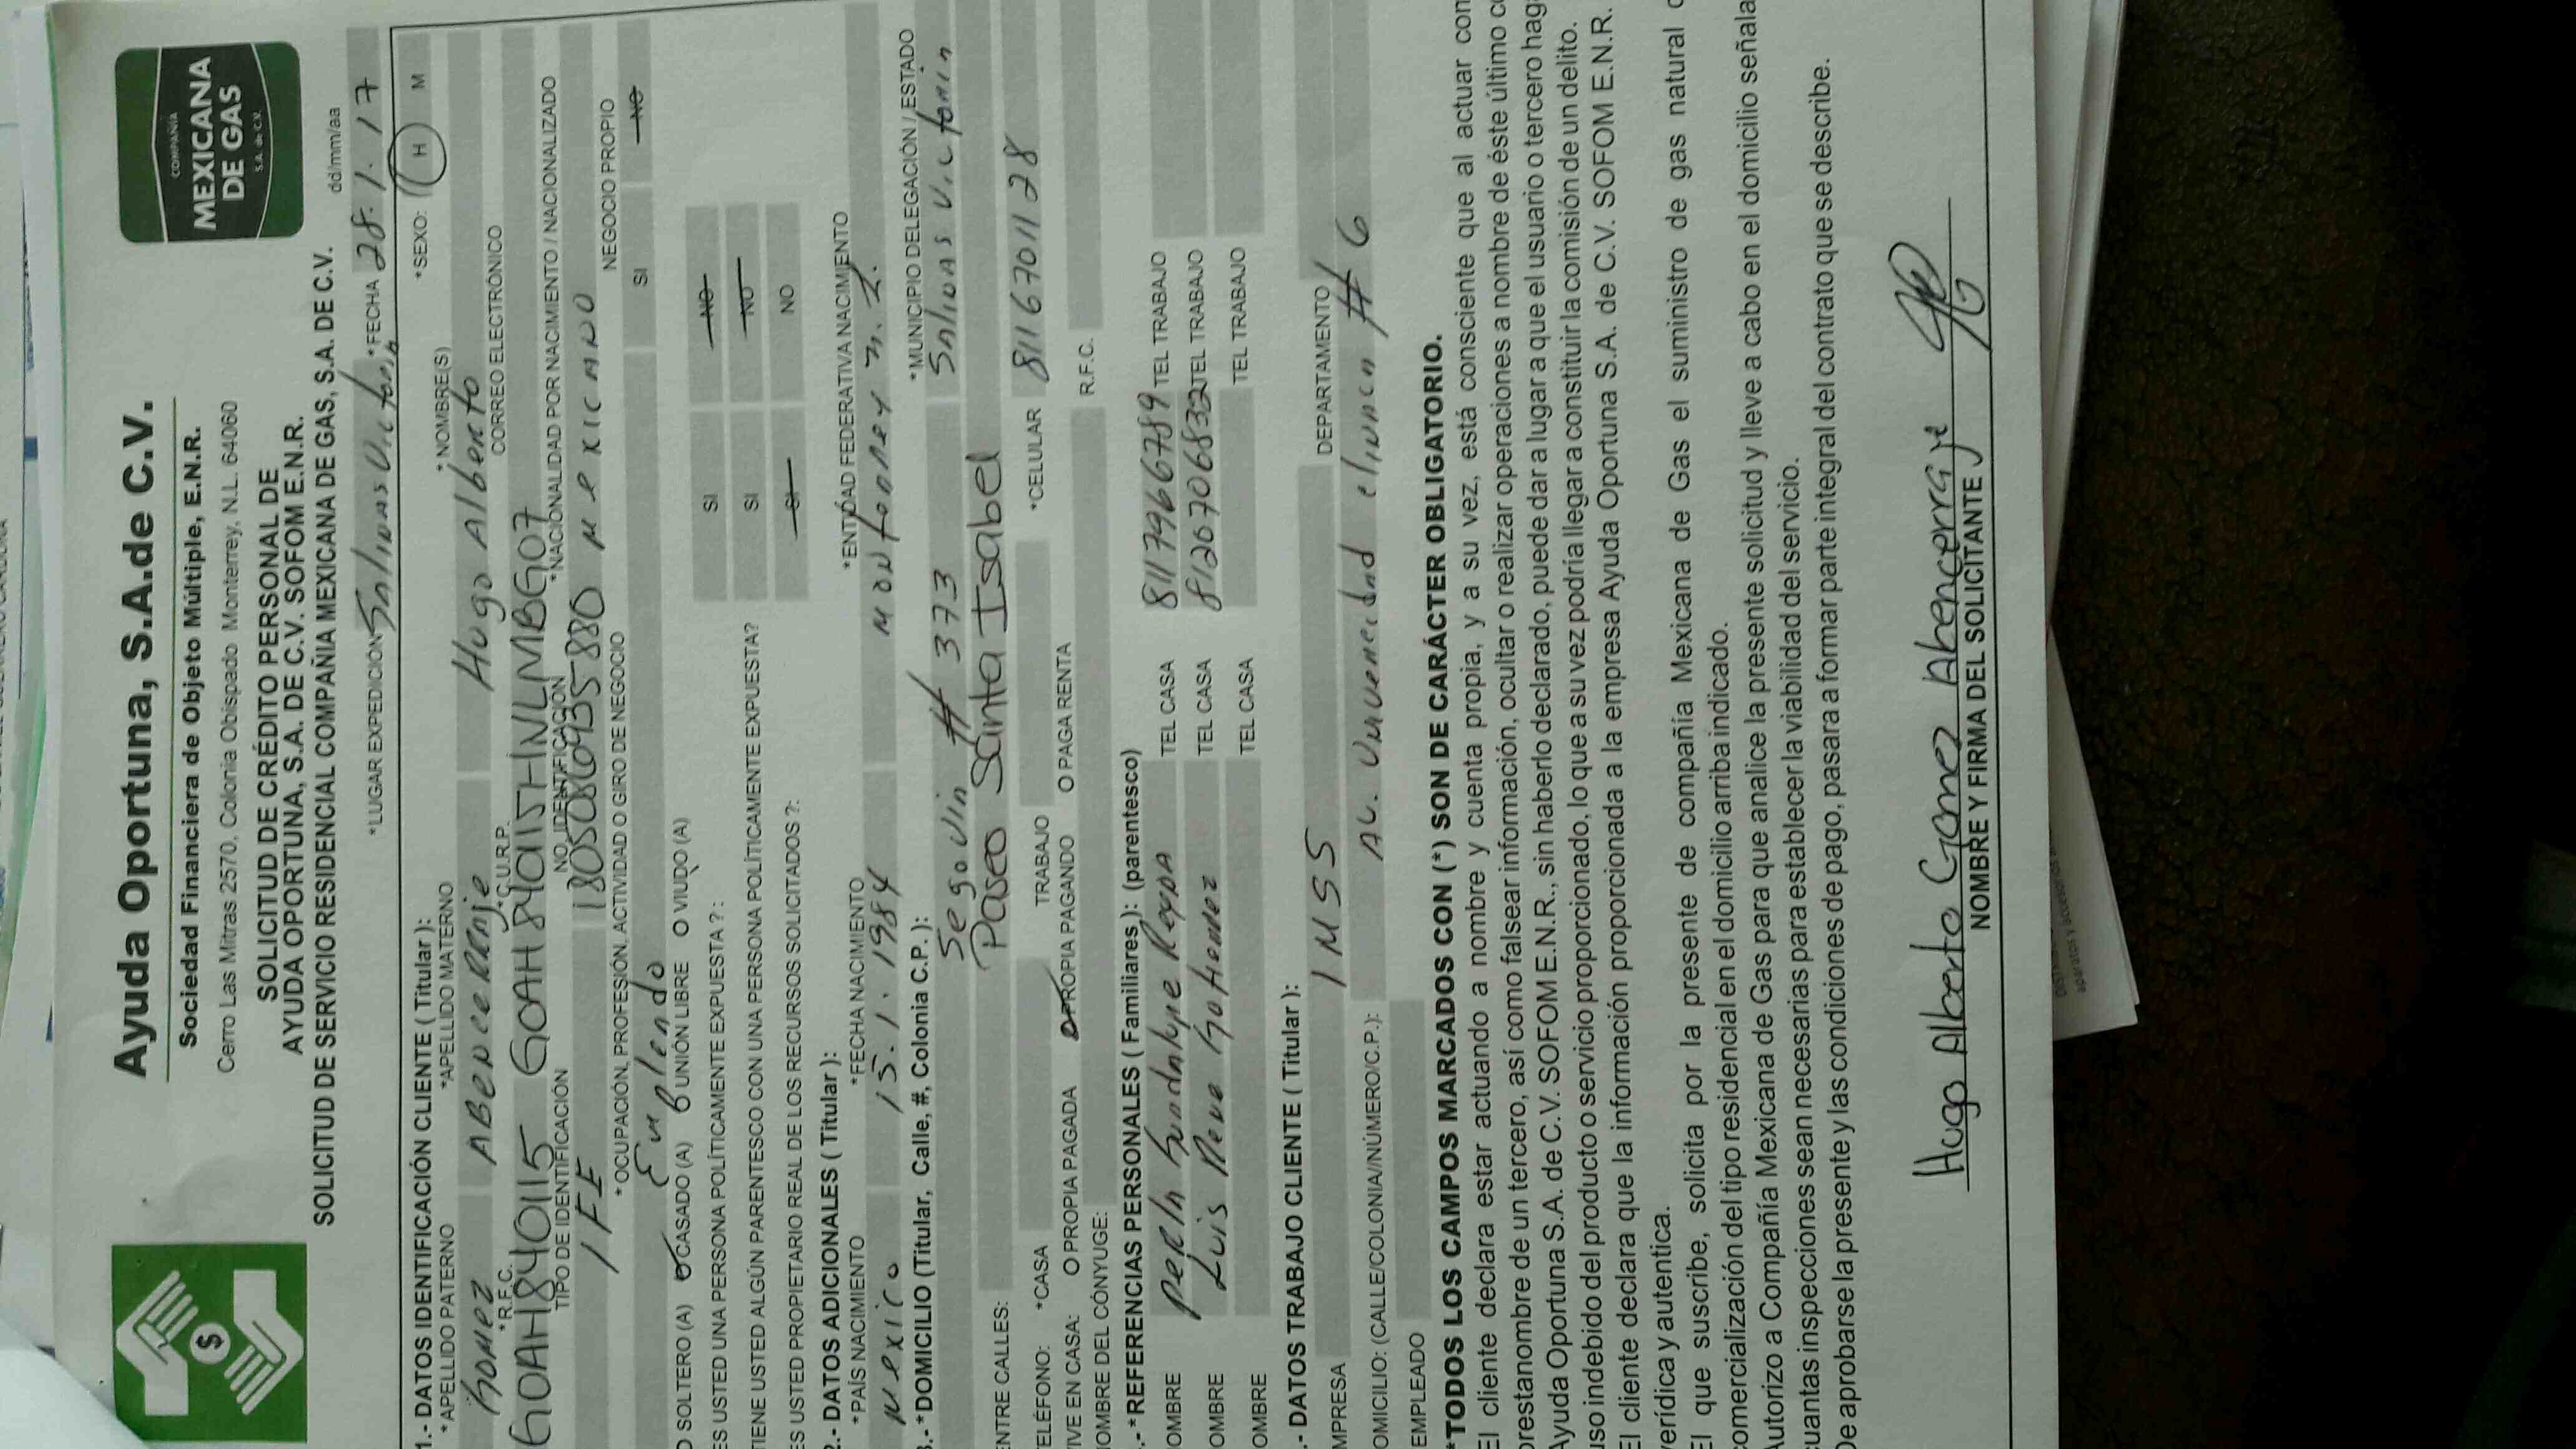 Ayuda Oportuna, S.A.de C.V.
Sociedad Financiera de Objeto Múltiple, E.N.R.
Cerro Las Mitras 2570, Colonia Obispado Monterrey, N.L. 64060
COMPAÑÍA
MEXICANA
DE GAS
S.A. de C.V.
$
SOLICITUD DE CRÉDITO PERSONAL DE
AYUDA OPORTUNA, S.A. DE C.V. SOFOM E.N.R.
SOLICITUD DE SERVICIO RESIDENCIAL COMPAÑIA MEXICANA DE GAS, S.A. DE C.V.
dd/mm/aa
*LUGAR EXPEDICION Salinas Victoria *FECHA 28. 1. 17
1.- DATOS IDENTIFICACIÓN CLIENTE ( Titular ): *SEXO: H M
*APELLIDO PATERNO *APELLIDO MATERNO *NOMBRE(S)
Gomez ABenceRRaje Hugo Alberto
*R.F.C. *C.U.R.P. CORREO ELECTRÓNICO
GOAH840115 GOAH840115HNLMBG07
TIPO DE IDENTIFICACIÓN NO. IDENTIFICACIÓN *NACIONALIDAD POR NACIMIENTO / NACIONALIZADO
IFE 1805086935880 Mexicano
*OCUPACIÓN, PROFESIÓN, ACTIVIDAD O GIRO DE NEGOCIO NEGOCIO PROPIO
Empleado SI NO
O SOLTERO (A) O CASADO (A) O UNIÓN LIBRE O VIUDO (A)
ES USTED UNA PERSONA POLÍTICAMENTE EXPUESTA ? : SI NO
TIENE USTED ALGÚN PARENTESCO CON UNA PERSONA POLÍTICAMENTE EXPUESTA? SI NO
ES USTED PROPIETARIO REAL DE LOS RECURSOS SOLICITADOS ?: SI NO
2.- DATOS ADICIONALES ( Titular ):
*PAÍS NACIMIENTO *FECHA NACIMIENTO *ENTIDAD FEDERATIVA NACIMIENTO
Mexico 15. 1. 1984 Monterrey N.L.
3.- *DOMICILIO (Titular, Calle, #, Colonia C.P. ): *MUNICIPIO DELEGACIÓN / ESTADO
Segovia # 373 Salinas Victoria
Paseo Santa Isabel
ENTRE CALLES:
TELÉFONO: *CASA TRABAJO *CELULAR 8116701128
VIVE EN CASA: O PROPIA PAGADA O PROPIA PAGANDO O PAGA RENTA
NOMBRE DEL CÓNYUGE: R.F.C.
.-*REFERENCIAS PERSONALES ( Familiares ): (parentesco)
OMBRE Perla Guadalupe Reyna TEL CASA 8117966789 TEL TRABAJO
OMBRE Luis TEL CASA 8126706832 TEL TRABAJO
OMBRE TEL CASA TEL TRABAJO
.- DATOS TRABAJO CLIENTE ( Titular ):
MPRESA IMSS DEPARTAMENTO
OMICILIO: (CALLE/COLONIA/NÚMERO/C.P.): # 6
EMPLEADO
*TODOS LOS CAMPOS MARCADOS CON (*) SON DE CARÁCTER OBLIGATORIO.
El cliente declara estar actuando a nombre y cuenta propia, y a su vez, está consciente que al actuar con
prestanombre de un tercero, así como falsear información, ocultar o realizar operaciones a nombre de éste último co
Ayuda Oportuna S.A. de C.V. SOFOM E.N.R., sin haberlo declarado, puede dar a lugar a que el usuario o tercero haga
uso indebido del producto o servicio proporcionado, lo que a su vez podría llegar a constituir la comisión de un delito.
El cliente declara que la información proporcionada a la empresa Ayuda Oportuna S.A. de C.V. SOFOM E.N.R.
verídica y autentica.
El que suscribe, solicita por la presente de compañía Mexicana de Gas el suministro de gas natural
comercialización del tipo residencial en el domicilio arriba indicado.
Autorizo a Compañía Mexicana de Gas para que analice la presente solicitud y lleve a cabo en el domicilio señala
cuantas inspecciones sean necesarias para establecer la viabilidad del servicio.
De aprobarse la presente y las condiciones de pago, pasara a formar parte integral del contrato que se describe.
Hugo Alberto Gomez Abencerraje
NOMBRE Y FIRMA DEL SOLICITANTE